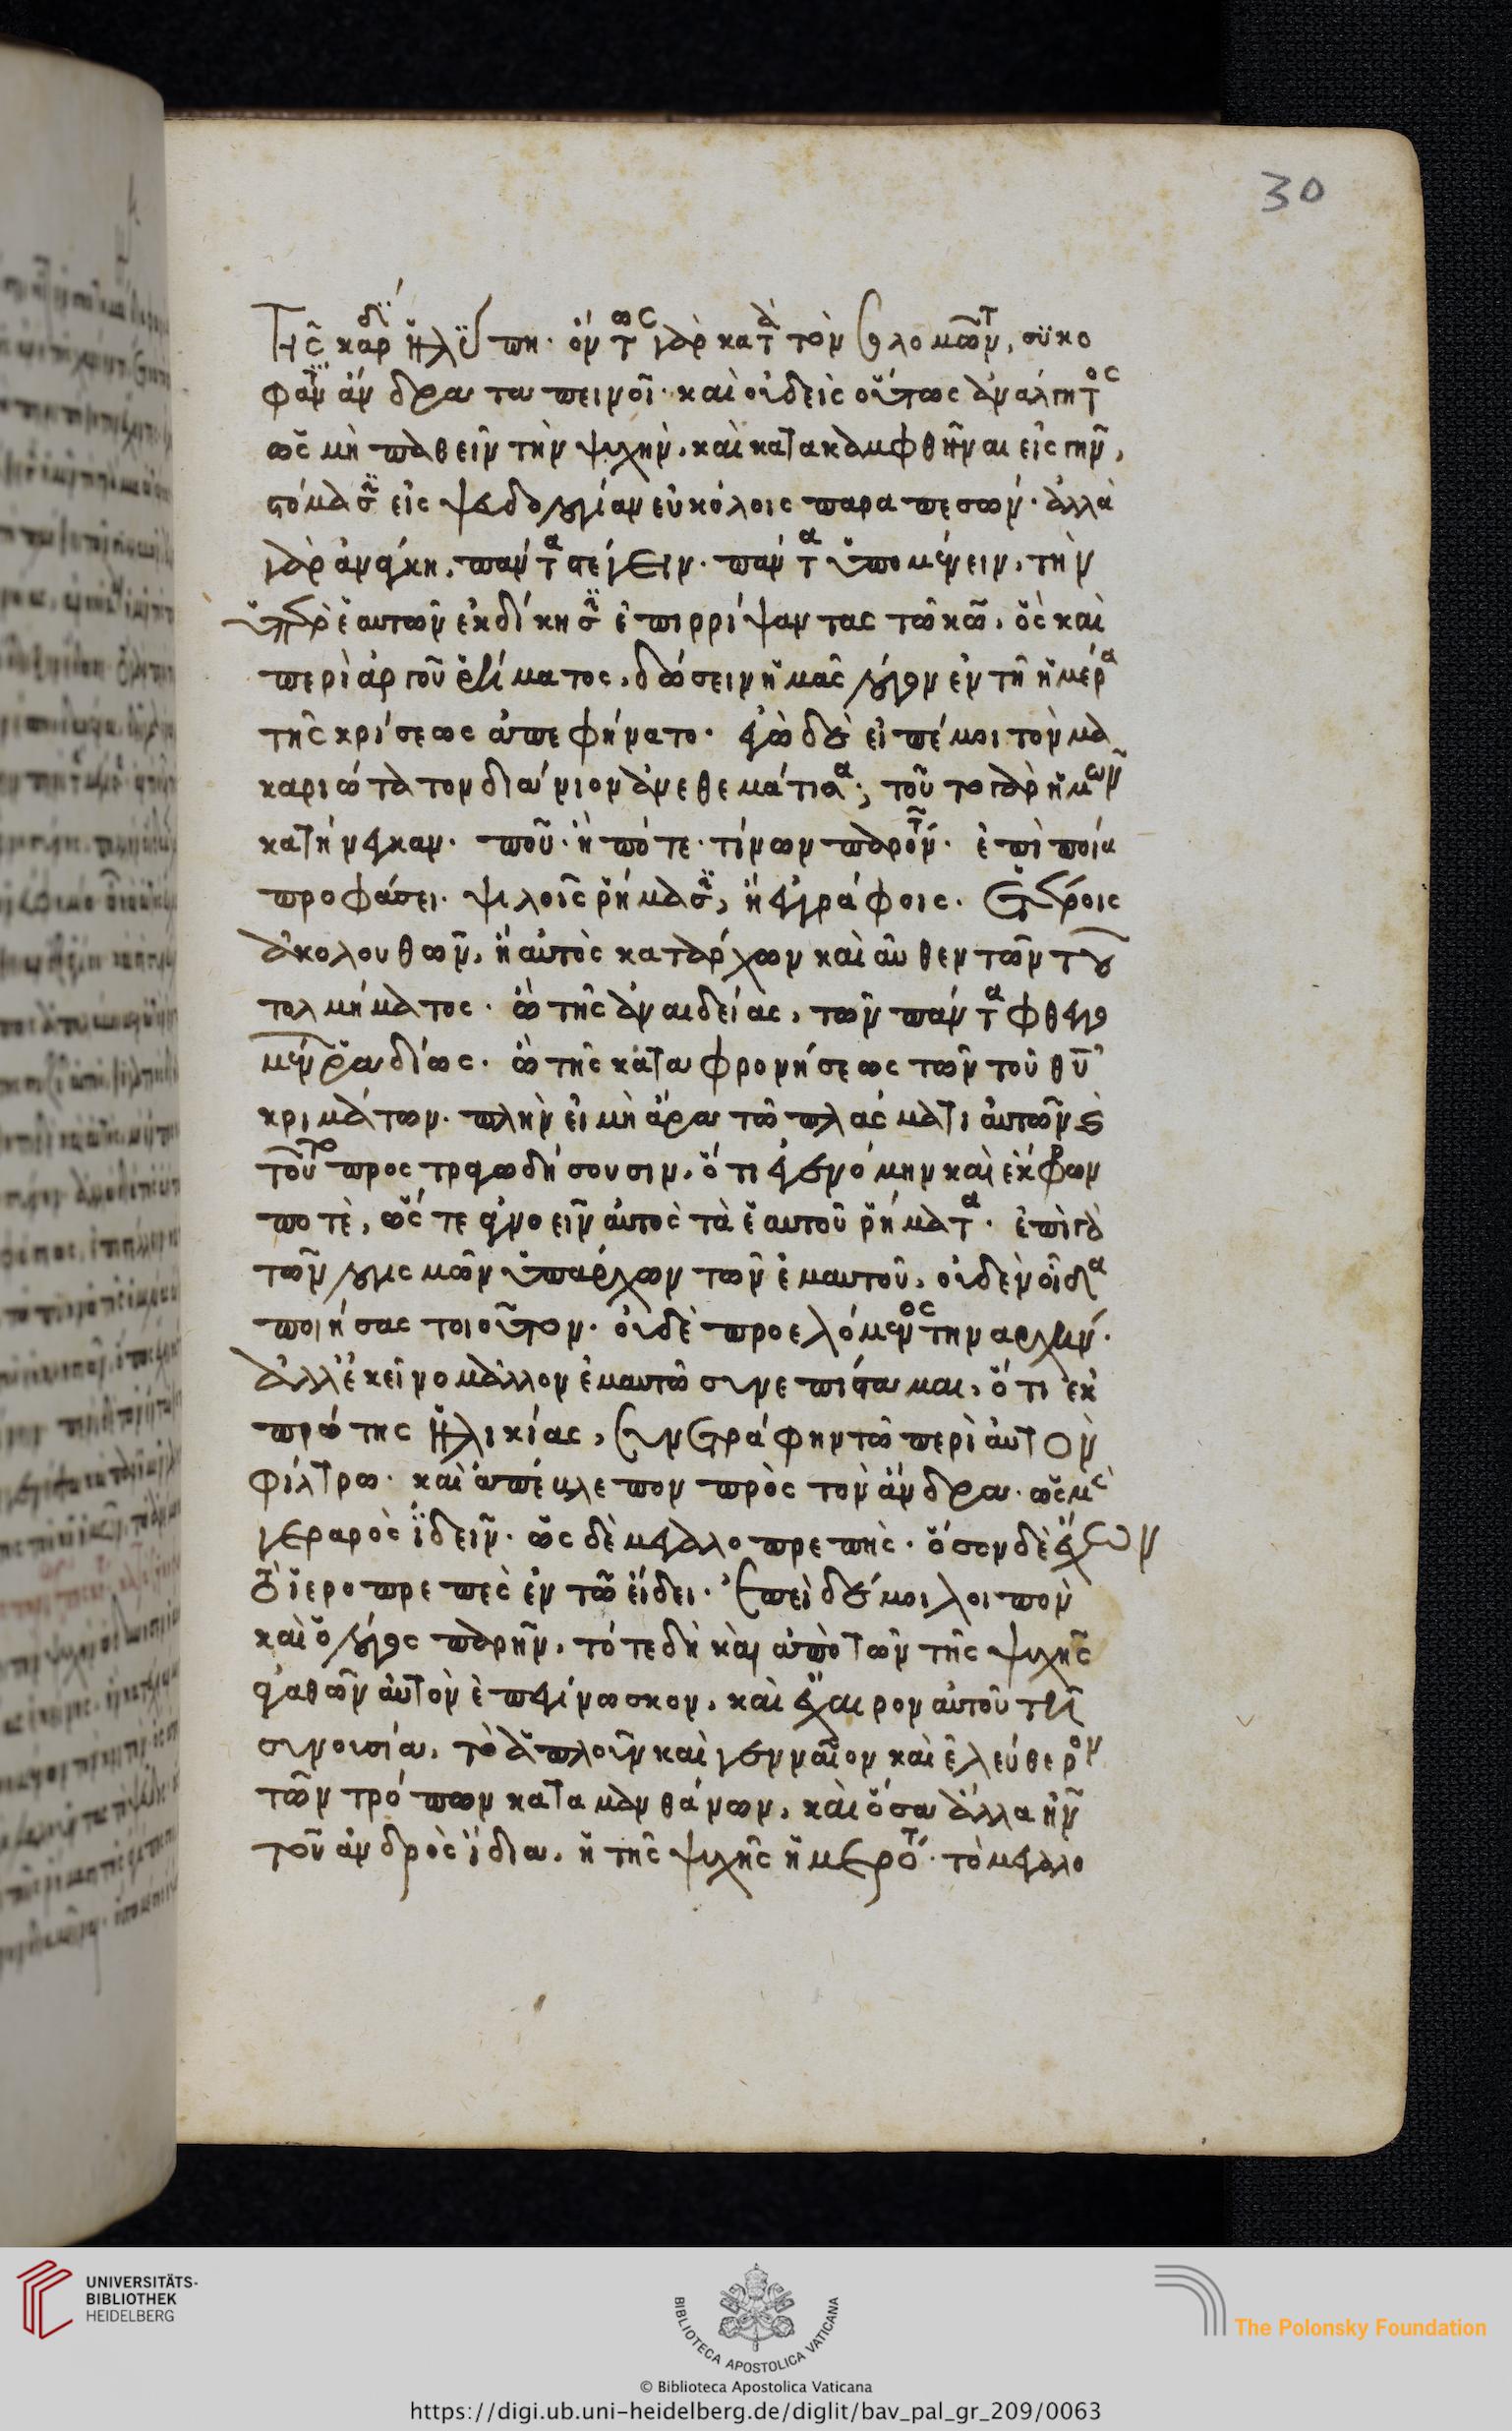 Τῆς καρδί ἡ λύπη· όντως γὰρ κατὰ τὸν Σολομῶντ, συκο
φαντ ἄνδρα ταπεινοῖ· καὶ οὐδεὶς οὕτως ἀνάλγητος
ὡς μὴ παθεῖν τὴν ψυχὴν, καὶ κατακαμφθῆναι εἰς γῆν,
στόμασϊ εἰς ψευδολογίαν εὐκόλοις παραπεσών· ἀλλὰ
γὰρ ἀνάγκη, πάντα στέγειν· πάντα ὑπομένειν, τὴν
ὑπὲρ ἑαυτῶν ἐκδίκησϊ ἐπιρρίψαντας τῶ κω, ὃς καὶ
περὶ ἀργοῦ ῥήματος, δώσειν ἡμᾶς λόγον ἐν τῆ ἡμέρα
τῆς κρίσεως ἀπεφήνατο· ἐγὼ δὲ εἰπέ μοι τὸν μα
καριώτατον διάνιον ἀνεθεμάτισα; τοῦτο γὰρ ἡμῶν
κατήνεγκαν· ποῦ· ἢ πότε· τίνων παρόντ· ἐπὶ ποία
προφάσει· ψιλοῖς ῥήμασϊ, ἢ ἐγγράφοις· ἑτέροις
ἀκολουθῶν, ἢ αὐτὸς κατάρχων καὶ αὐθεντῶν τοῦ
τολμήματος· ὢ τῆς ἀναιδείας, τῶν πάντα φθεγγο
μέν ῥαδίως· ὢ τῆς καταφρονήσεως τῶν τοῦ θυ
κριμάτων· πλὴν εἰ μὴ ἄρα τῶ πλάσματι αὐτῶν ϗ
τοῦτο προστραγωδήσουσιν, ὅτι ἐγενόμην καὶ ἔκφρων
ποτὲ, ὥς τε ἀγνοεῖν αὐτὸς τὰ ἑαυτοῦ ῥήματα· ἐπὶ γὰ
τῶν λογισμῶν ὑπάρχων τῶν ἐμαυτοῦ, οὐδὲν οἶδα
ποιήσας τοιοῦτον· οὐδὲ προελόμενος τὴν ἀρχήν·
ἀλλ' ἐκεῖνο μᾶλλον ἐμαυτῶ συνεπίσταμαι, ὅτι ἐκ
πρώτης ἡλικίας, συνετράφην τῶ περὶ αὐτὸν
φίλτρω· καὶ ἀπέβλεπον πρὸς τὸν ἄνδρα· ὡς μὲ
γεραρὸς ἰδεῖν· ὡς δὲ μεγαλοπρεπὴς· ὅσον δὲ ἔχων
τὸ ἱεροπρεπὲς ἐν τῶ εἴδει· ἐπεὶ δέ μοι λοιπὸν
καὶ ὁ λόγος παρῆν, τότε δὴ καὶ ἀπὸ τῶν τῆς ψυχῆς
ἀγαθῶν αὐτὸν ἐπεγίνωσκον, καὶ ἔχαιρον αὐτοῦ τῆ
συνουσία, τὸ ἁπλοῦν καὶ γενναῖον καὶ ἐλεύθερον
τῶν τρόπων καταμανθάνων, καὶ ὅσα ἄλλα ἦν
τοῦ ἀνδρὸς ἴδια, ἡ τῆς ψυχῆς ἡμερότ· τὸ μεγαλο
30
UNIVERSITÄTS-
BIBLIOTHEK
HEIDELBERG
BIBLIOTECA APOSTOLICA VATICANA
The Polonsky Foundation
© Biblioteca Apostolica Vaticana
https://digi.ub.uni-heidelberg.de/diglit/bav_pal_gr_209/0063